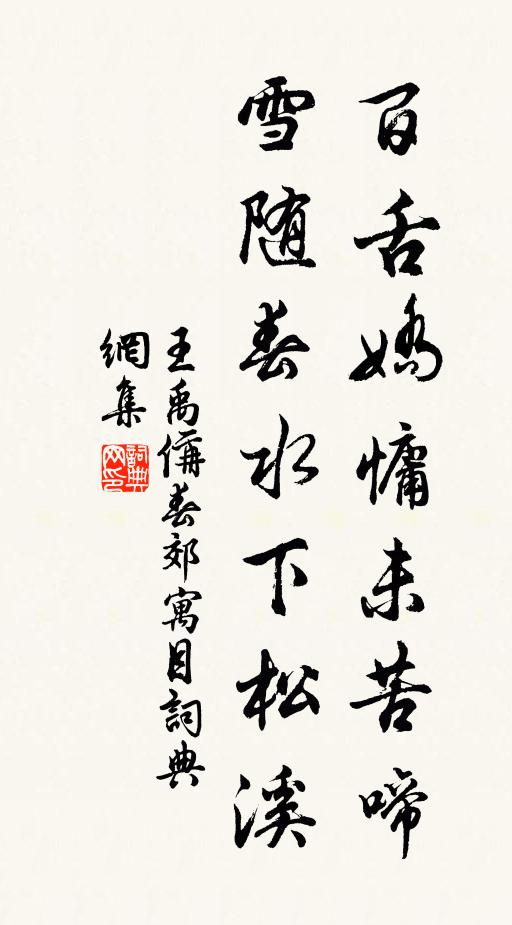 百舌嬌慵未苦啼
雪随春水下松溪
王禹偁春郊寓目詞典
網集
詞典
网印